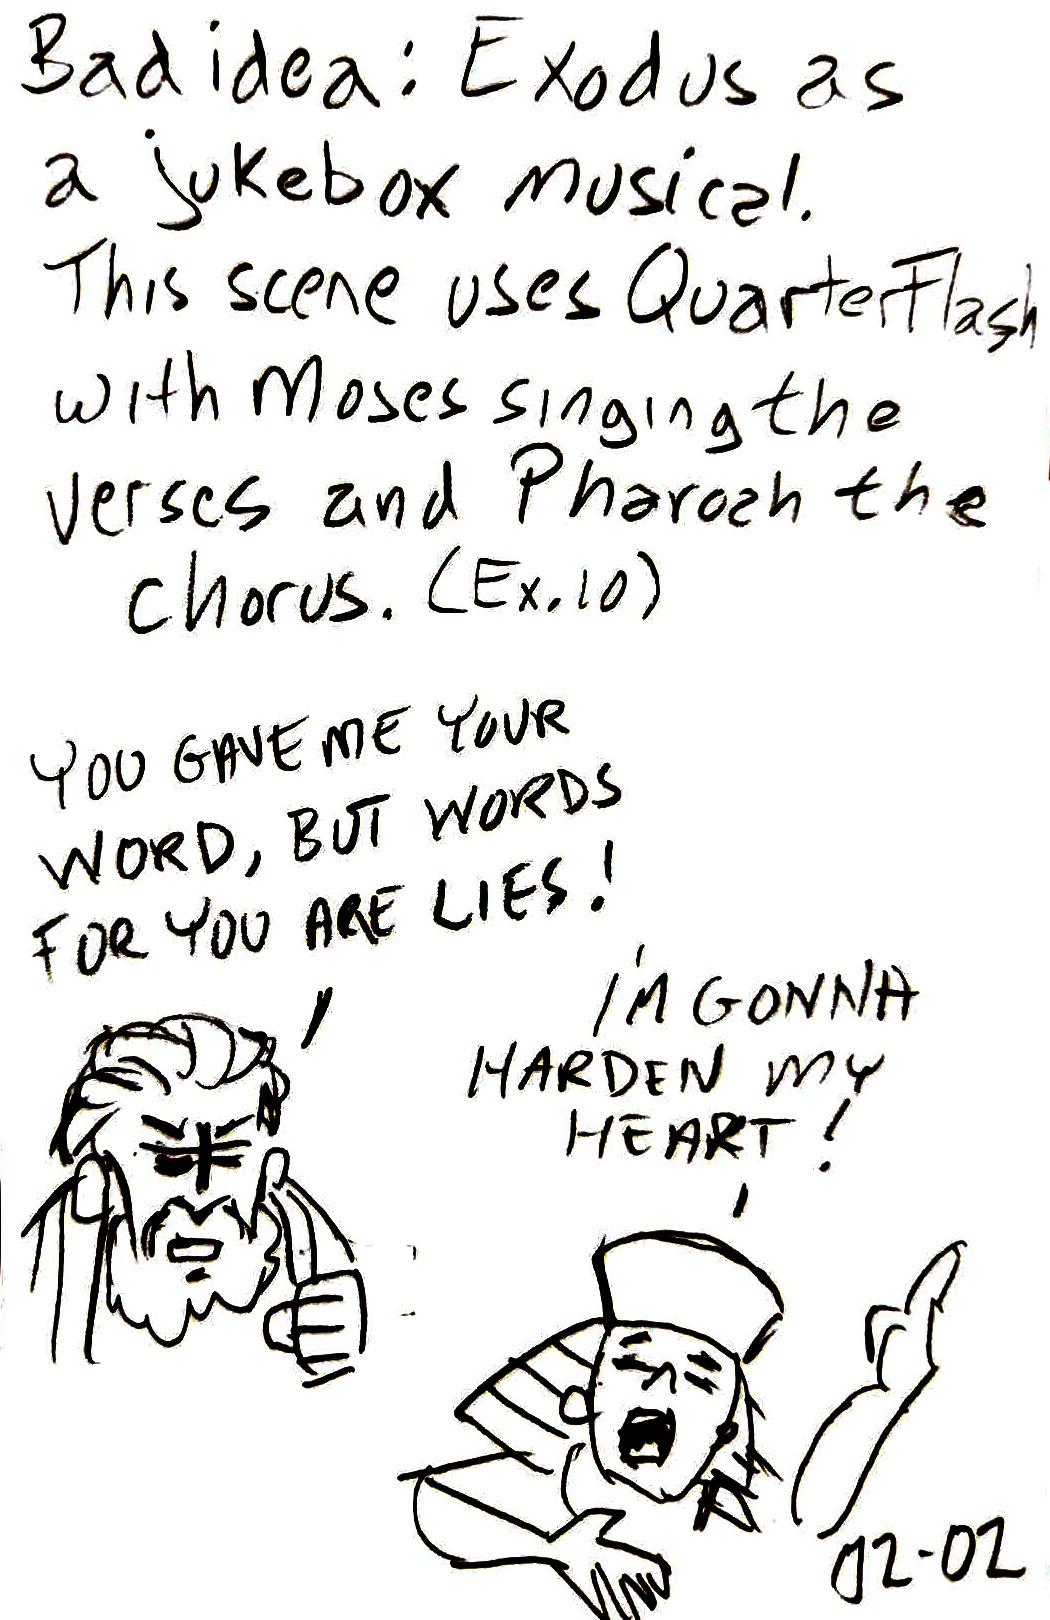 Bad idea: Exodus as
a jukebox musical.
This scene uses QuarterFlash
with Moses singing the
verses and Pharoah the
chorus. (Ex.10)
YOU GAVE ME YOUR
WORD, BUT WORDS
FOR YOU ARE LIES!
I'M GONNA
HARDEN MY
HEART!
02-02